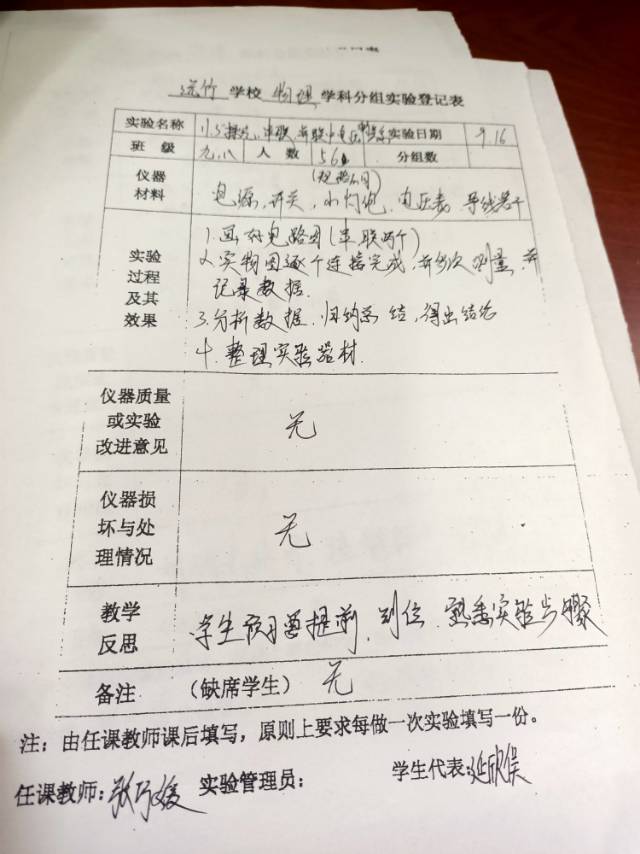 学校 物理 学科分组实验登记表
实验名称 11.5探究 串联、并联中电压 实验日期 9.16
班 级 九.八 人 数 56 分组数
仪器材料 (规格不同) 电源、开关、小灯泡、电压表、导线若干
实验过程及其效果 1.画好电路图(串、联两个)
2.实物图逐个连接完成,并多次测量,并
记录数据.
3.分析数据.归纳总结,得出结论
4.整理实验器材.
仪器质量或实验改进意见 无
仪器损坏与处理情况 无
教学反思 学生预习要提前、到位、熟悉实验步骤
备注 (缺席学生) 无
注:由任课教师课后填写,原则上要求每做一次实验填写一份。
任课教师: 实验管理员: 学生代表: